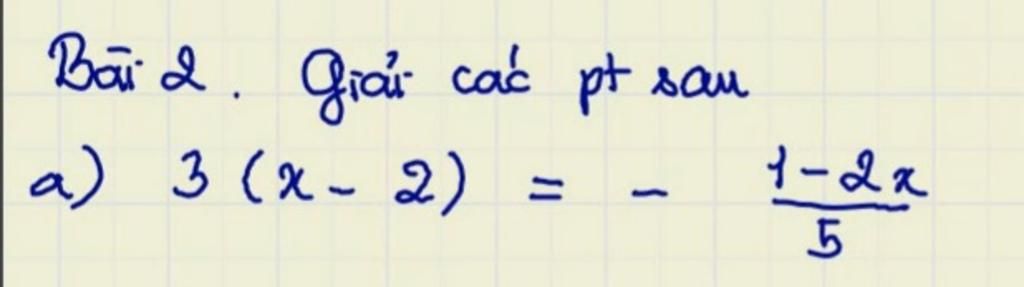 Bài 2. Giải các pt sau
a) 3(x - 2) = - \frac{1-2x}{5}